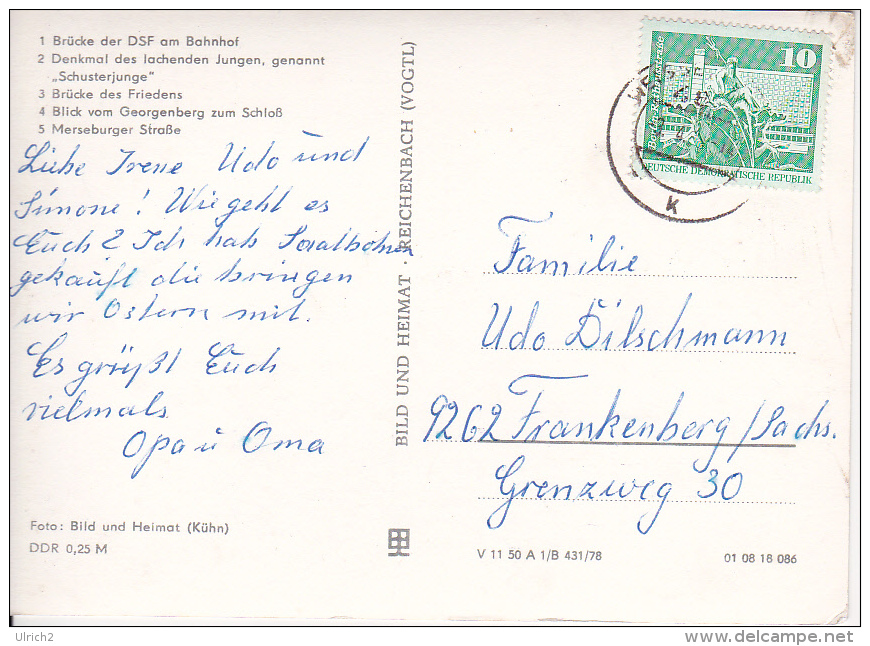 1 Brücke der DSF am Bahnhof
2 Denkmal des lachenden Jungen, genannt
„Schusterjunge"
3 Brücke des Friedens
4 Blick vom Georgenberg zum Schloß
5 Merseburger Straße
Liebe Irene Udo und
Simone! Wie geht es
Euch? Ich hab
gekauft die bringen
wir Ostern mit.
Es grüßt Euch
vielmals
Opa u Oma
Foto: Bild und Heimat (Kühn)
DDR 0,25 M
BILD UND HEIMAT · REICHENBACH (VOGTL)
10
DEUTSCHE DEMOKRATISCHE REPUBLIK
k
Familie
Udo Dilschmann
9262 Frankenberg/Sachs.
Grenzweg 30
V 11 50 A 1/B 431/78
01 08 18 086
Ulrich2
www.delcampe.net